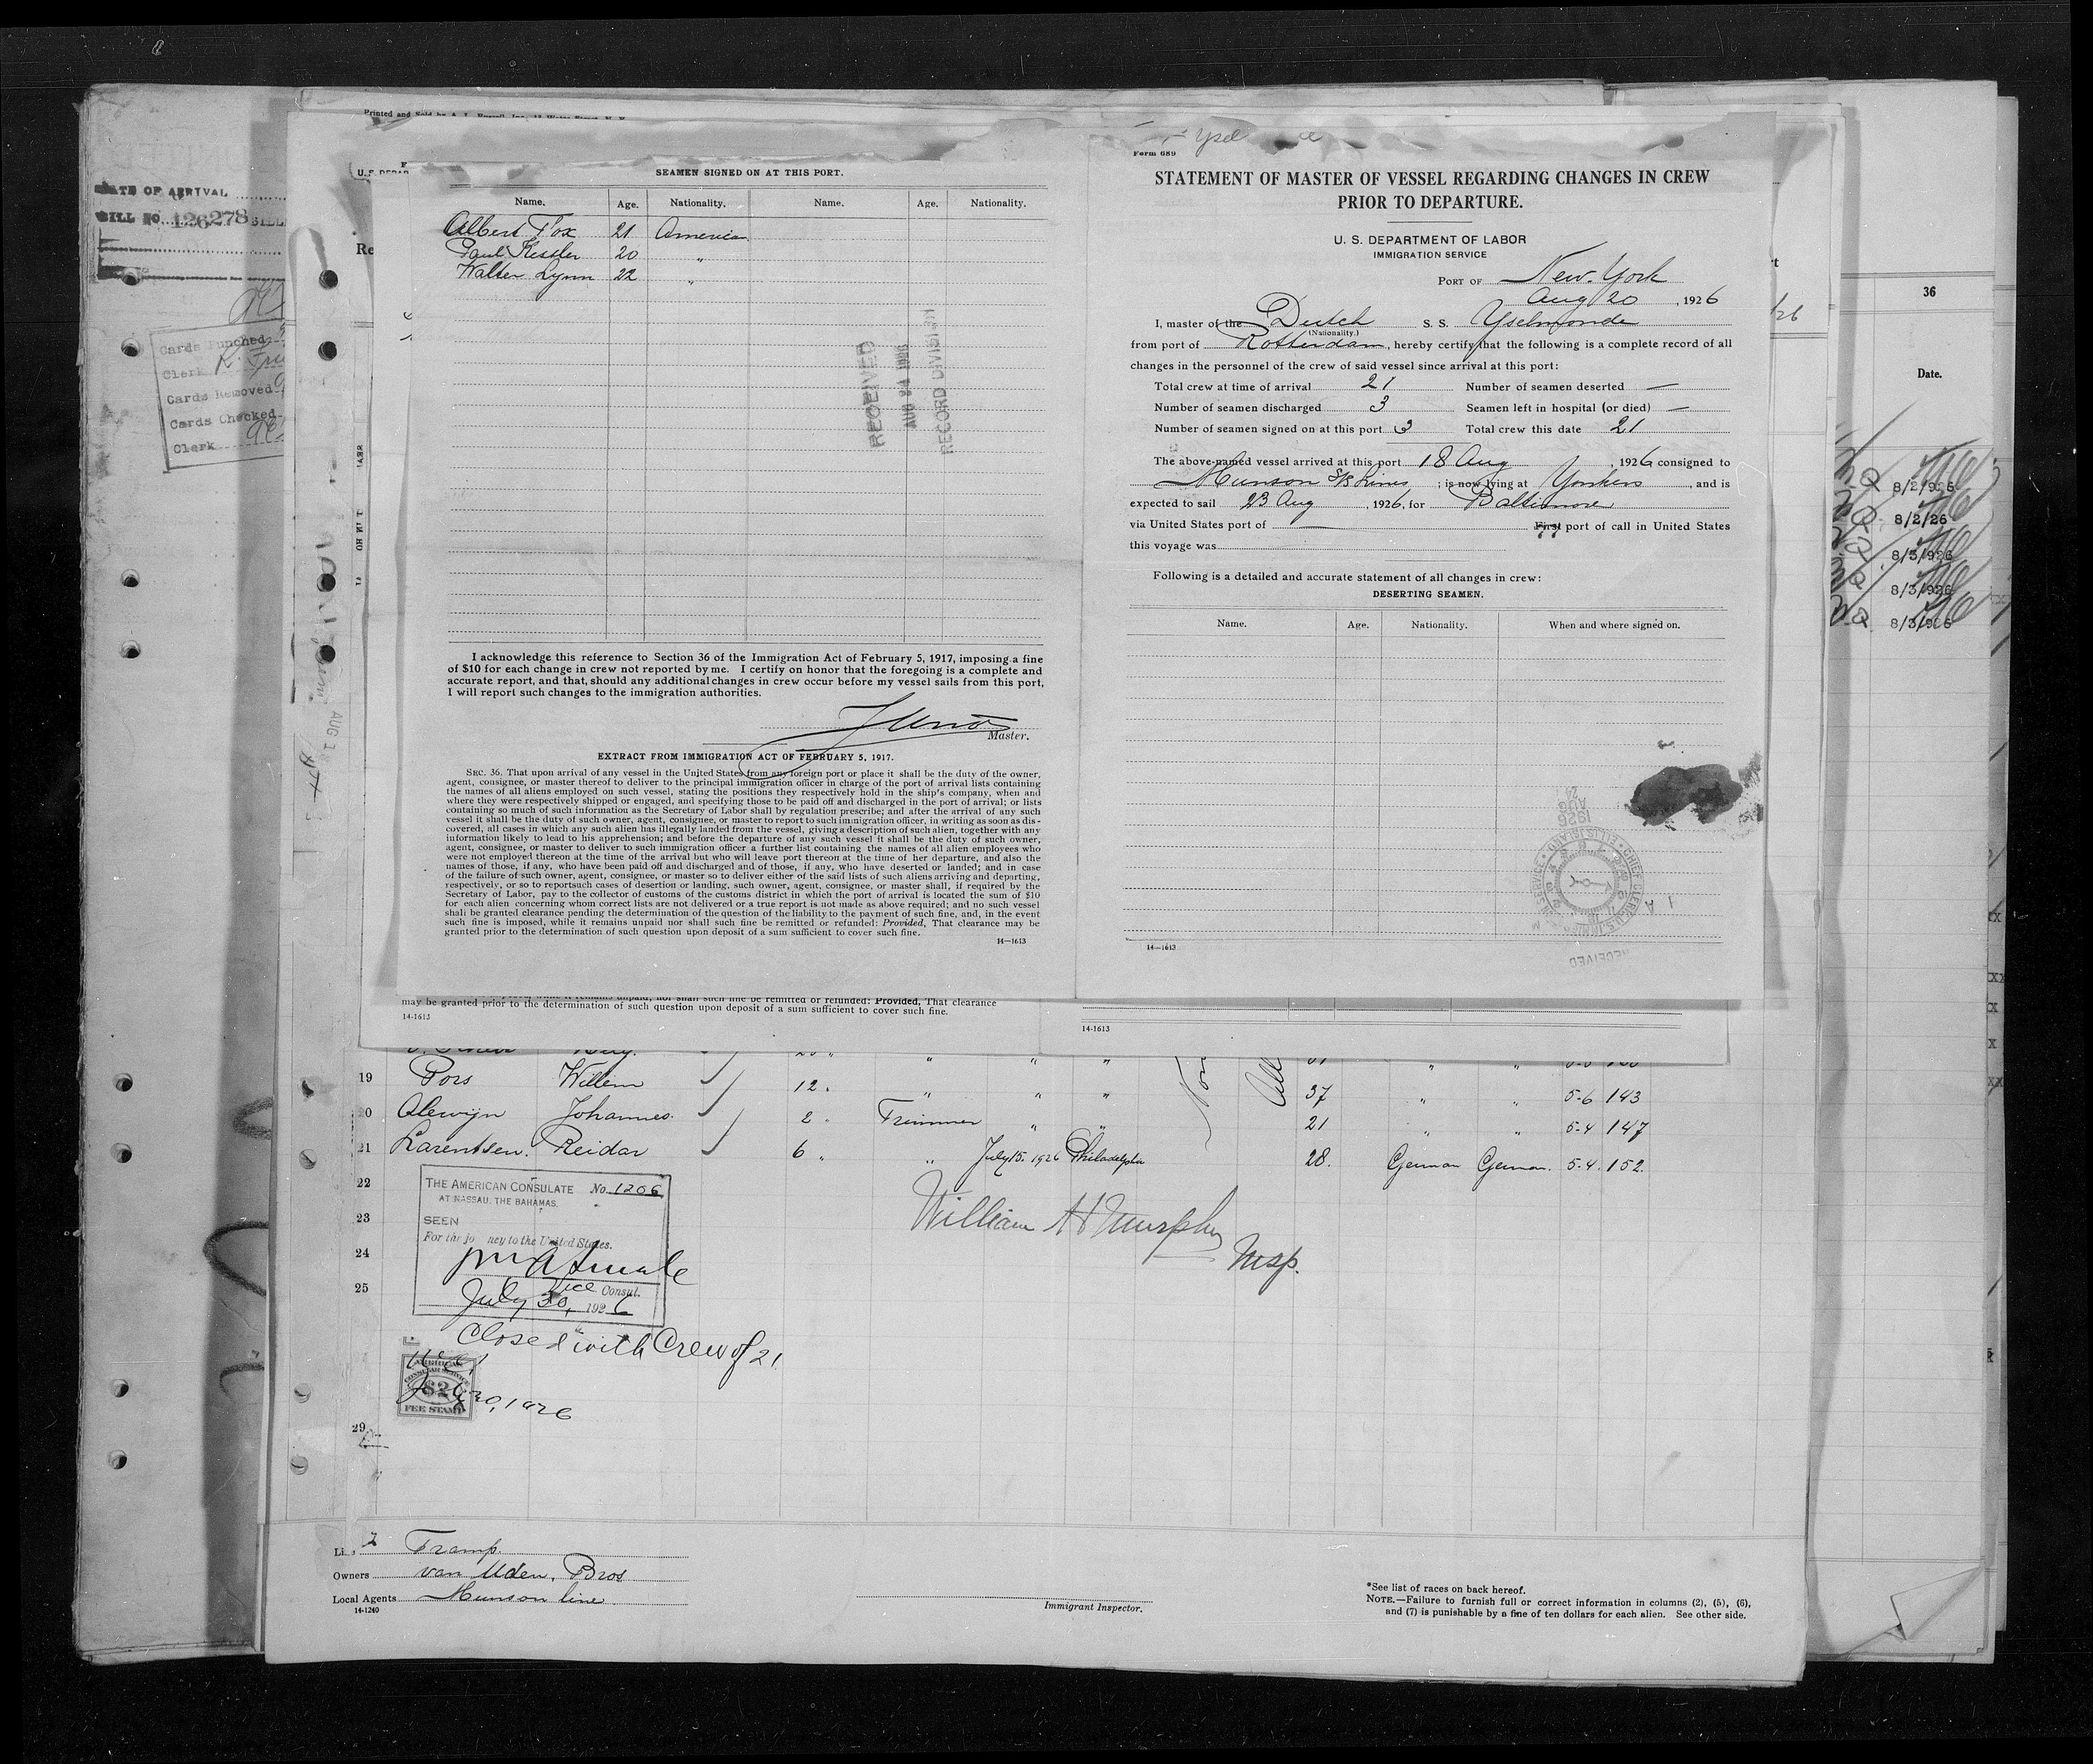 DATE OF ARRIVAL
BILL NO. 126278
Cards Punched
Clerk
Cards Removed
Cards Checked
Clerk
SEAMEN SIGNED ON AT THIS PORT.
Name. Age. Nationality. Name. Age. Nationality.
Albert Fox 21 America
Paul Kestler 20 "
Walter Lynn 22 "
RECEIVED
RECORD DIVISION
I acknowledge this reference to Section 36 of the Immigration Act of February 5, 1917, imposing a fine
of $10 for each change in crew not reported by me. I certify on honor that the foregoing is a complete and
accurate report, and that, should any additional changes in crew occur before my vessel sails from this port,
I will report such changes to the immigration authorities.
Master.
EXTRACT FROM IMMIGRATION ACT OF FEBRUARY 5, 1917.
SEC. 36. That upon arrival of any vessel in the United States from any foreign port or place it shall be the duty of the owner,
agent, consignee, or master thereof to deliver to the principal immigration officer in charge of the port of arrival lists containing
the names of all aliens employed on such vessel, stating the positions they respectively hold in the ship's company, when and
where they were respectively shipped or engaged, and specifying those to be paid off and discharged in the port of arrival; or lists
containing so much of such information as the Secretary of Labor shall by regulation prescribe; and after the arrival of any such
vessel it shall be the duty of such owner, agent, consignee, or master to report to such immigration officer, in writing as soon as dis-
covered, all cases in which any such alien has illegally landed from the vessel, giving a description of such alien, together with any
information likely to lead to his apprehension; and before the departure of any such vessel it shall be the duty of such owner,
agent, consignee, or master to deliver to such immigration officer a further list containing the names of all alien employees who
were not employed thereon at the time of the arrival but who will leave port thereon at the time of her departure, and also the
names of those, if any, who have been paid off and discharged and of those, if any, who have deserted or landed; and in case
of the failure of such owner, agent, consignee, or master so to deliver either of the said lists of such aliens arriving and departing,
respectively, or so to reportsuch cases of desertion or landing, such owner, agent, consignee, or master shall, if required by the
Secretary of Labor, pay to the collector of customs of the customs district in which the port of arrival is located the sum of $10
for each alien concerning whom correct lists are not delivered or a true report is not made as above required; and no such vessel
shall be granted clearance pending the determination of the question of the liability to the payment of such fine, and, in the event
such fine is imposed, while it remains unpaid nor shall such fine be remitted or refunded: Provided, That clearance may be
granted prior to the determination of such question upon deposit of a sum sufficient to cover such fine.
14—1613
Form 689
STATEMENT OF MASTER OF VESSEL REGARDING CHANGES IN CREW
PRIOR TO DEPARTURE.
U. S. DEPARTMENT OF LABOR
IMMIGRATION SERVICE
PORT OF New York
Aug 20, 1926
I, master of the Dutch S. S. Yselmonde
(Nationality.)
from port of Rotterdam, hereby certify that the following is a complete record of all
changes in the personnel of the crew of said vessel since arrival at this port:
Total crew at time of arrival 21 Number of seamen deserted —
Number of seamen discharged 3 Seamen left in hospital (or died) —
Number of seamen signed on at this port 3 Total crew this date 21
The above-named vessel arrived at this port 18 Aug, 1926 consigned to
Munson S/S Lines; is now lying at Yonkers, and is
expected to sail 23 Aug, 1926, for Baltimore
via United States port of — First port of call in United States
this voyage was
Following is a detailed and accurate statement of all changes in crew:
DESERTING SEAMEN.
Name. Age. Nationality. When and where signed on.
14—1613
RECEIVED
36
Date.
8/2/926
8/2/26
8/3/926
8/3/926
8/3/926
may be granted prior to the determination of such question upon deposit of a sum sufficient to cover such fine.
14-1613
14-1613
19 Pors Willem 12 " " " " 37 " " 5-6 143
20 Alewijn Johannes 2 " Trimmer " " 21 " " 5-4 147
21 Larentsen. Reidar 6 " " July 15. 1926 Philadelphia 28. German German. 5-4. 152.
22
23
24
25
29
THE AMERICAN CONSULATE No. 1206
AT NASSAU, THE BAHAMAS.
SEEN
For the jo ney to the United States.
Vice Consul.
July 30, 1926
Closed with Crew of 21
AMERICAN
CONSULAR SERVICE
$2
FEE STAMP
July 30, 1926
William H Murphy
Insp.
Line Tramp.
Owners van Uden, Bros
Local Agents Munson line
14-1240
Immigrant Inspector.
*See list of races on back hereof.
NOTE.—Failure to furnish full or correct information in columns (2), (5), (6),
and (7) is punishable by a fine of ten dollars for each alien. See other side.